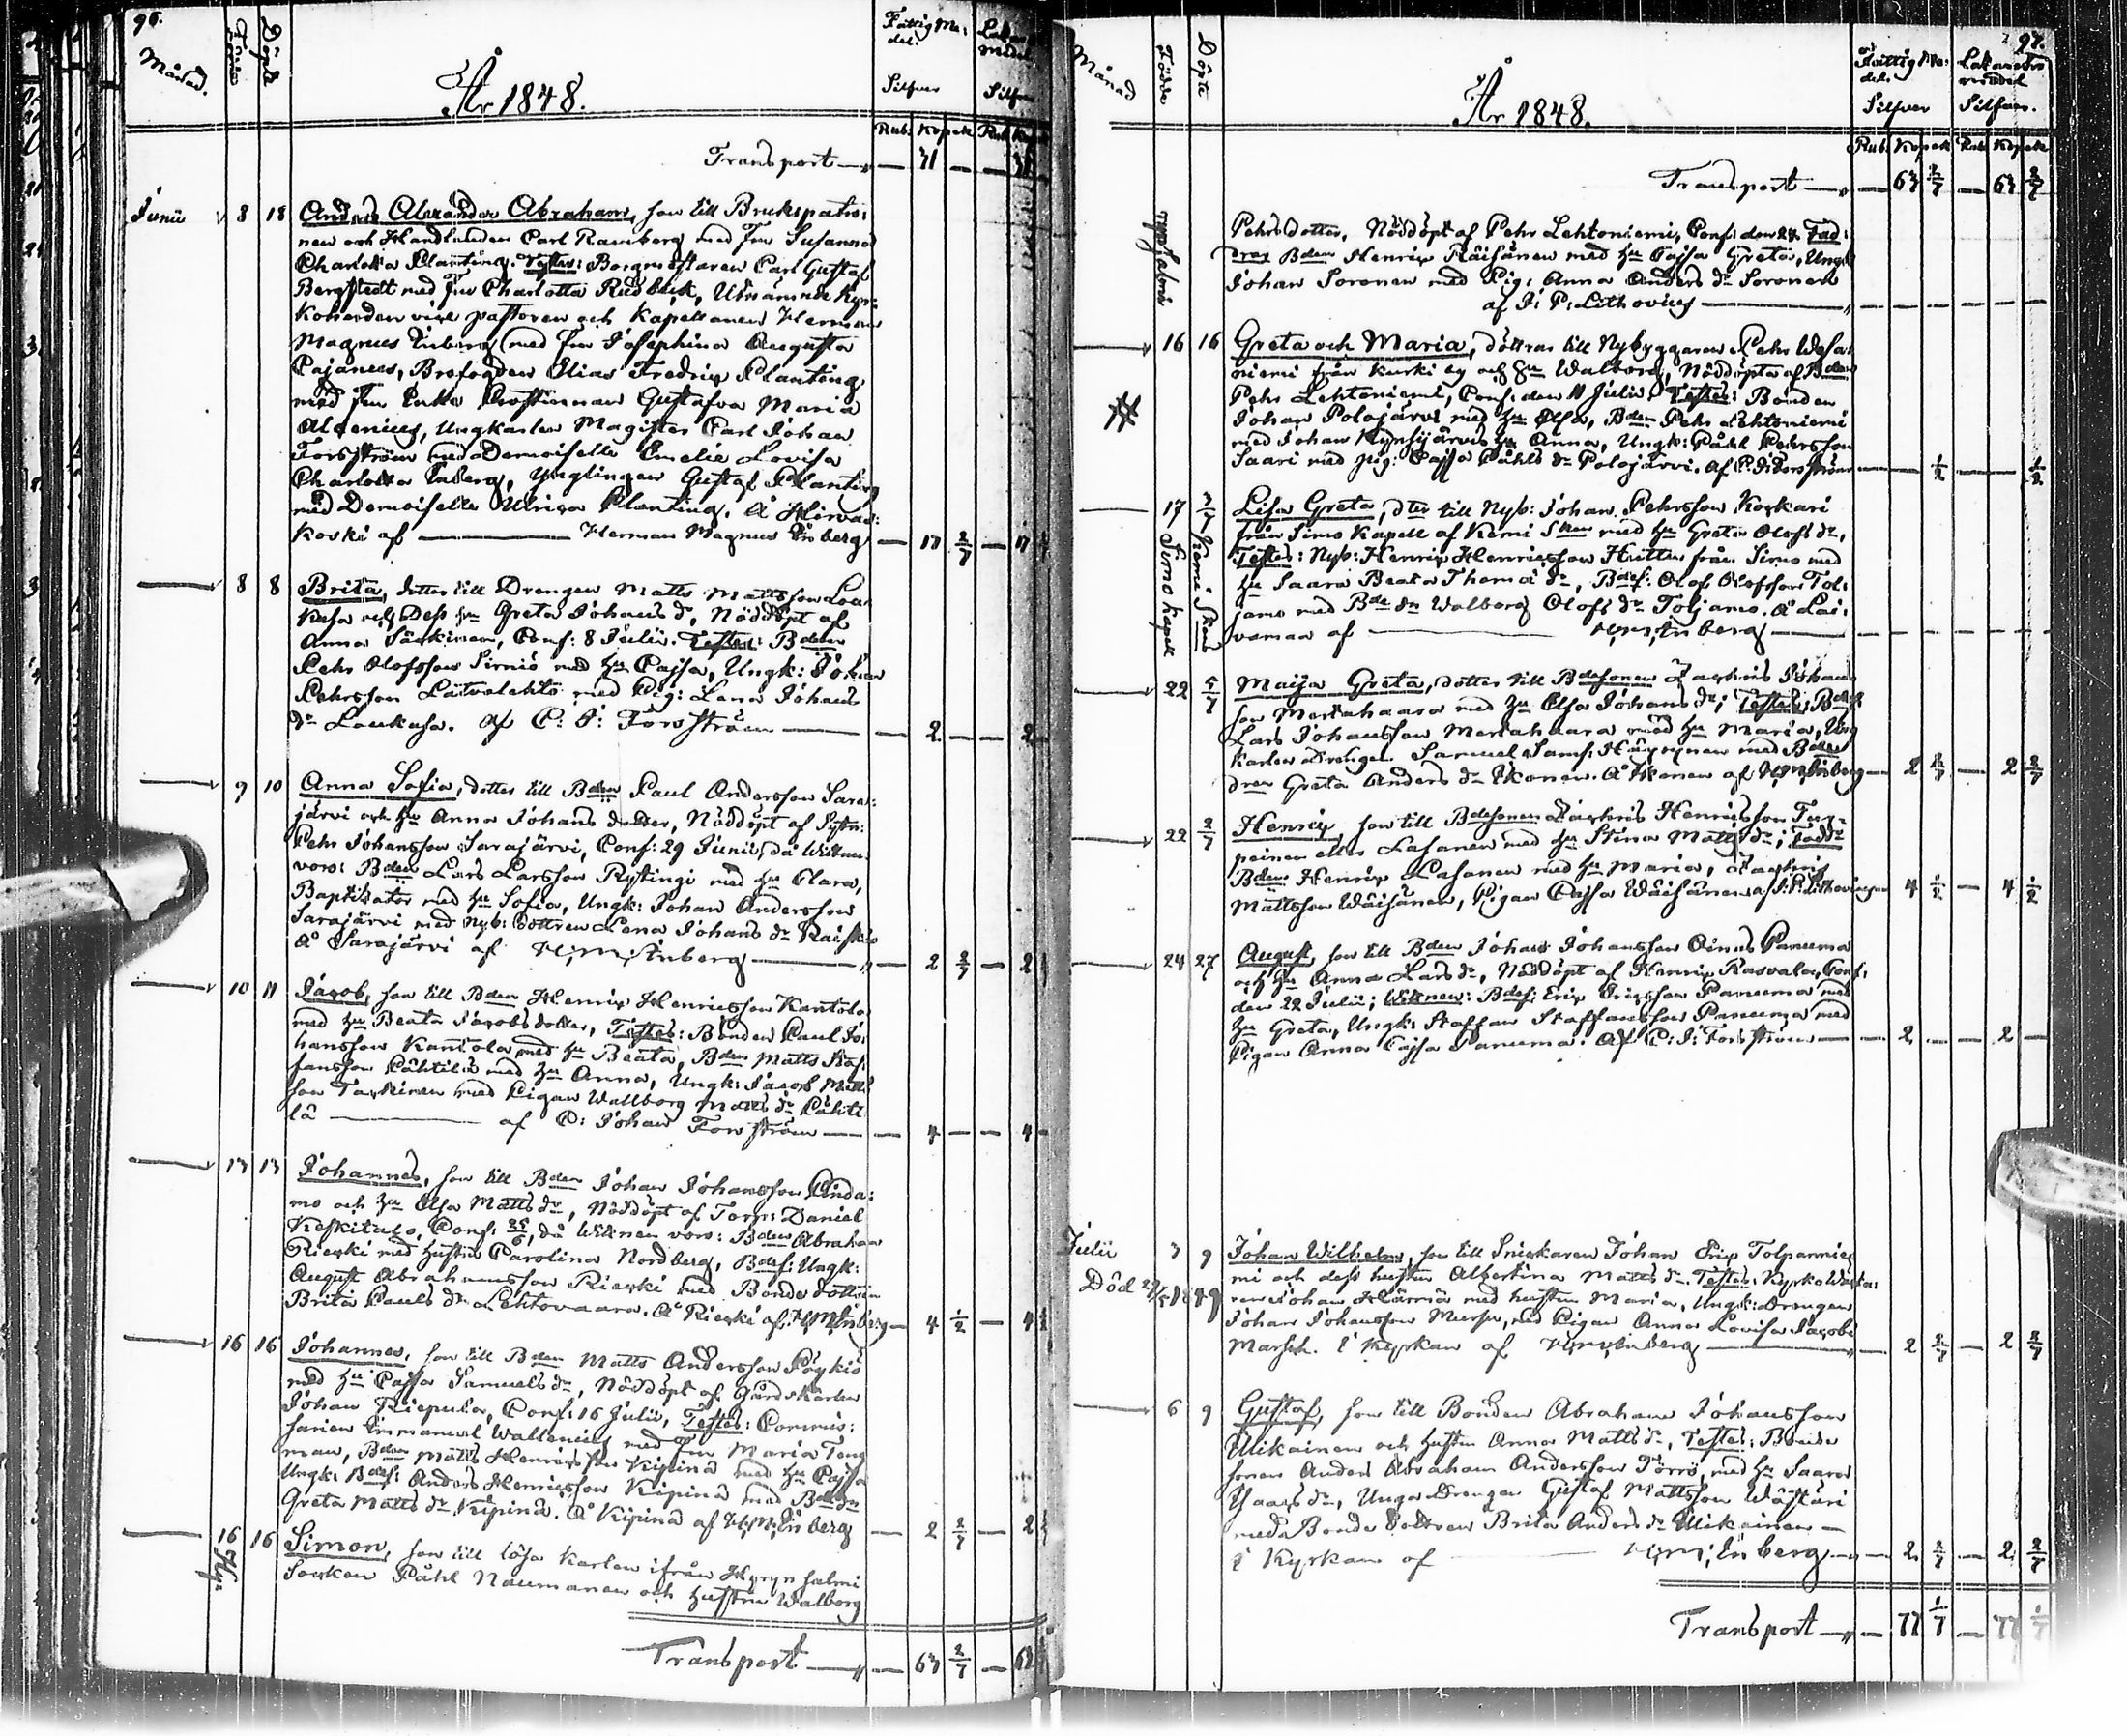 96.
Månad. Födde Döpte
År 1848.
Fattig Me:
del.
Silfver
Rub. Kopek
Transport — 31 — 31
Junii 8 18 Anders Alexander Abraham, son till Brukspatro:
nen och Handlanden Carl Ramberg med Fru Susanna
Charlotta Planting. Testes: Borgmästaren Carl Gustaf
Bergstedt med Fru Charlotta Rudbeck, Utnämnde Kyr:
koherden vice pastoren och Kapellanen Herman
Magnus Enberg med Fru Josephina Augusta
Cajanus, Brofogden Elias Fredrip Planting
med Fru Enka Prostinnan Gustafva Maria
Alcenius, Ungkarlen Magister Carl Johan
Forsström med Demoiselle Emelie Lovisa
Charlotta Enberg, Ynglingen Gustaf Planting
med Demoiselle Ulrica Planting. Å Hirvas:
koski af — Herman Magnus Enberg — 17 2/7 — 17
8 8 Brita, dotter till Drengen Matts Mattsson Lou
kusa och Dess hu Greta Johans dr, Nöddöpt af
Anna Särkinen, Conf: 8 Julii. Testes: Bden
Pehr Olofsson Sirniö med hu Cajsa, Ungk: Johan
Pehrsson Lätvalehto med Pig: Lena Johans
dr Loukusa. af C: J: Forsström — 2 — 2
9 10 Anna Sofia, dotter till Bden Paul Andersson Sara:
järvi och hu Anna Johans dotter, Nöddöpt af Sytn:
Pehr Johansson Sarajärvi, Conf: 29 Junii, då Wittnen
voro: Bden Lars Larsson Rytingi med hu Clara,
Baptisator med hu Sofia, Ungk: Johan Andersson
Sarajärvi med Nyb: dottren Lena Johans dr Raiskio
Å Sarajärvi af H: M: Enberg — 2 2/7 — 2
10 11 Jacob, son till Bden Henrip Henricsson Kantola
med hu Beata Jacobs dotter, Testes: Bonden Paul Jo:
hansson Kantola med hu Beata, Bden Matts Staf:
fansson Pähtilä med hu Anna, Ungk: Jacob Matts
son Tarkinen med Pigan Wallborg Matts dr Pähti
lä — af C: Johan Forsström — 4 — 4
13 13 Johannes, son till Bden Johan Johansson Pinda:
mo och hu Elsa Matts dr, Nöddöpt af Torp: Daniel
Keskitalo, Conf: 25/6, då Wittnen voro: Bden Abraham
Riepki med hustru Carolina Nordberg, Bdes: Ungk:
August Abrahamsson Riepki med Bonde dottren
Brita Pauls dr Lehtovaara. Å Riepki af H: M: Enberg — 4 1/2 — 4
16 16 Johannes, son till Bden Matts Andersson Pöykiö
med hu Cajsa Samuels dr, Nöddöpt af Gårdskarlen
Johan Riepula, Conf: 16 Julii, Testes: Commis:
sarien Emmanuel Wallenius med Fru Maria Teng
man, Bden Matts Henricsson Kipinä med hu Cajsa
Ungk: Bdes: Anders Henricsson Kipinä med Bde dr
Greta Matts dr Kipinä. Å Kipinä af H: M: Enberg — 2 2/7 — 2
16 16 Simon, son till lösa karlen ifrån Hyrynsalmi
Socken Påhl Naumanen och hustru Walborg
Transport — 63 2/7 — 63
97.
Månad Födde Döpte
År 1848.
Fattig Me:
del.
Silfver
Lakarets
medel
Silfver.
Rub. Kopek Rub. Kopek
Transport — 63 2/7 — 63 2/7
Pehrs dotter, Nöddöpt af Pehr Lehtoniemi, Conf: den 24. Fad:
drar Bden Henrip Räisänen med hu Cajsa Greta, Ungk
Johan Soronen med Pig: Anna Anders dr Soronen
af J: P: Lithovius —
16 16 Greta och Maria, döttrar till Nybyggaren Pehr Wesa:
niemi från Kurki by och hu Walborg, Nöddöpta af Bden
Pehr Lehtoniemi, Conf: den 11 Julii. Testes: Bonden
Johan Polojärvi med hu Elsa, Bden Pehr Lehtoniemi
med Johan Kynsijärvis hu Anna, Ungk: Påhl Pehrsson
Saari med pig: Cajsa Påhls dr Polojärvi. af C: J: Forsström — 1/2 — 1/2
17 3/7 Lisa Greta, dter till Nyb: Johan Pehrsson Korkari
från Simo Kapell af Kemi Sken med hu Greta Olofs dr,
Testes: Nyb: Henrip Henricsson Huitten från Simo med
hu Saara Beata Thoma dr, Bdes: Olof Olofsson Tol:
jamo med Bde dr Walborg Olofs dr Toljamo. Å Lai:
vamaa af — H: M: Enberg —
Simo kapell Kemi Sken
22 5/7 Maija Greta, dotter till Bdesonen Zachris Johans
son Mertahaara med hu Elsa Johans dr; Testes: Bden
Lars Johansson Mertahaara med hu Maria, Ung
karlen Drengen Samuel Sams: Häyrynen med Bden
drar Greta Anders dr Ikonen. Å Ikonen af H: M: Enberg — 2 2/7 — 2 2/7
22 2/7 Henrip, son till Bdesonen Zachris Henricsson Tur:
peinen eller Lasanen med hu Stina Matts dr; Faddr
Bden Henrip Lasanen med hu Maria, Zachris
Mattsson Wäisänen, Pigan Cajsa Wäisänen af J: P: Lithovius — 4 1/2 — 4 1/2
24 27 August, son till Bden Johan Johansson Oinas Panuma
och hu Anna Lars dr, Nöddöpt af Henrip Kasvala, Conf:
den 22 Julii; Wittnen: Bdes: Erip Ericsson Panuma med
hu Greta, Ungk: Staffan Staffansson Panuma med
Pigan Anna Cajsa Panuma. Af C: J: Forsström — 2 — 2 —
Julii 3 9 Johan Wilhelm, son till Snickaren Johan Erip Tolpannie
mi och dess hustru Albertina Matts dr. Testes: Kyrko Wäkta:
ren Johan Härmä med hustru Maria, Ungk: Drengen
Johan Johansson Mursu, med Pigan Anna Lovisa Jacobs
Marsch. i Kyrkan af H: M: Enberg — 2 2/7 — 2 2/7
Död 29/5 1849
6 9 Gustaf, son till Bonden Abraham Johansson
Ulikainen och hustru Anna Matts dr, Testes: Bonde
sonen Anders Abraham Andersson Törrö, med hu Saara
Isaacs dr, Unga Drengen Gustaf Mattsson Wästäri
med Bonde dottren Brita Anders dr Ulikainen —
i Kyrkan af — H: M: Enberg — 2 2/7 — 2 2/7
Transport — 77 1/7 — 77 1/7